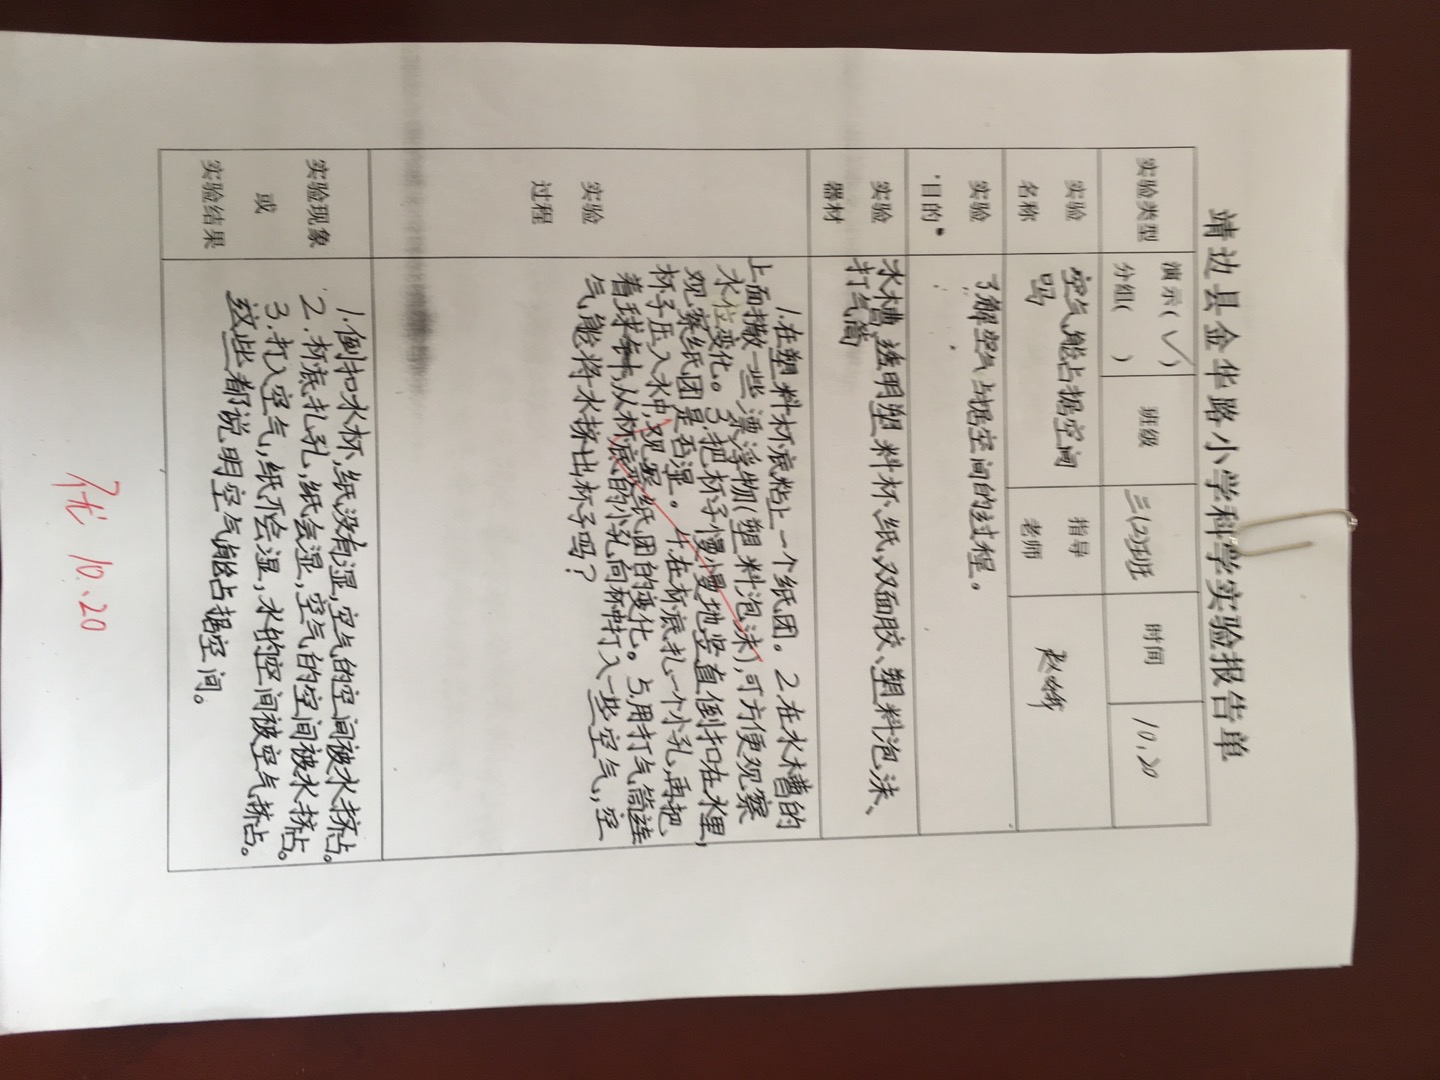 靖边县金华路小学科学实验报告单
实验类型 演示(√) 分组( ) 班级 三(2)班 时间 10.20
实验名称 空气能占据空间吗 指导老师 赵
实验目的 了解空气占据空间的过程。
实验器材 水槽、透明塑料杯、纸、双面胶、塑料泡沫、
打气筒
实验过程
1.在塑料杯底粘上一个纸团。2.在水槽的
上面撒一些漂浮物(塑料泡沫),可方便观察
水位变化。3.把杯子慢慢地竖直倒扣在水里,
观察纸团是否湿。4.在杯底扎一个小孔,再把
杯子压入水中,观察纸团的变化。5.用打气筒连
着球针从杯底的小孔向杯中打入一些空气,空
气能将水挤出杯子吗?
实验现象或实验结果
1.倒扣水杯,纸没有湿,空气的空间被水挤占。
2.杯底扎孔,纸会湿,空气的空间被水挤占。
3.打入空气,纸不会湿,水的空间被空气挤占。
这些都说明空气能占据空间。
优 10.20